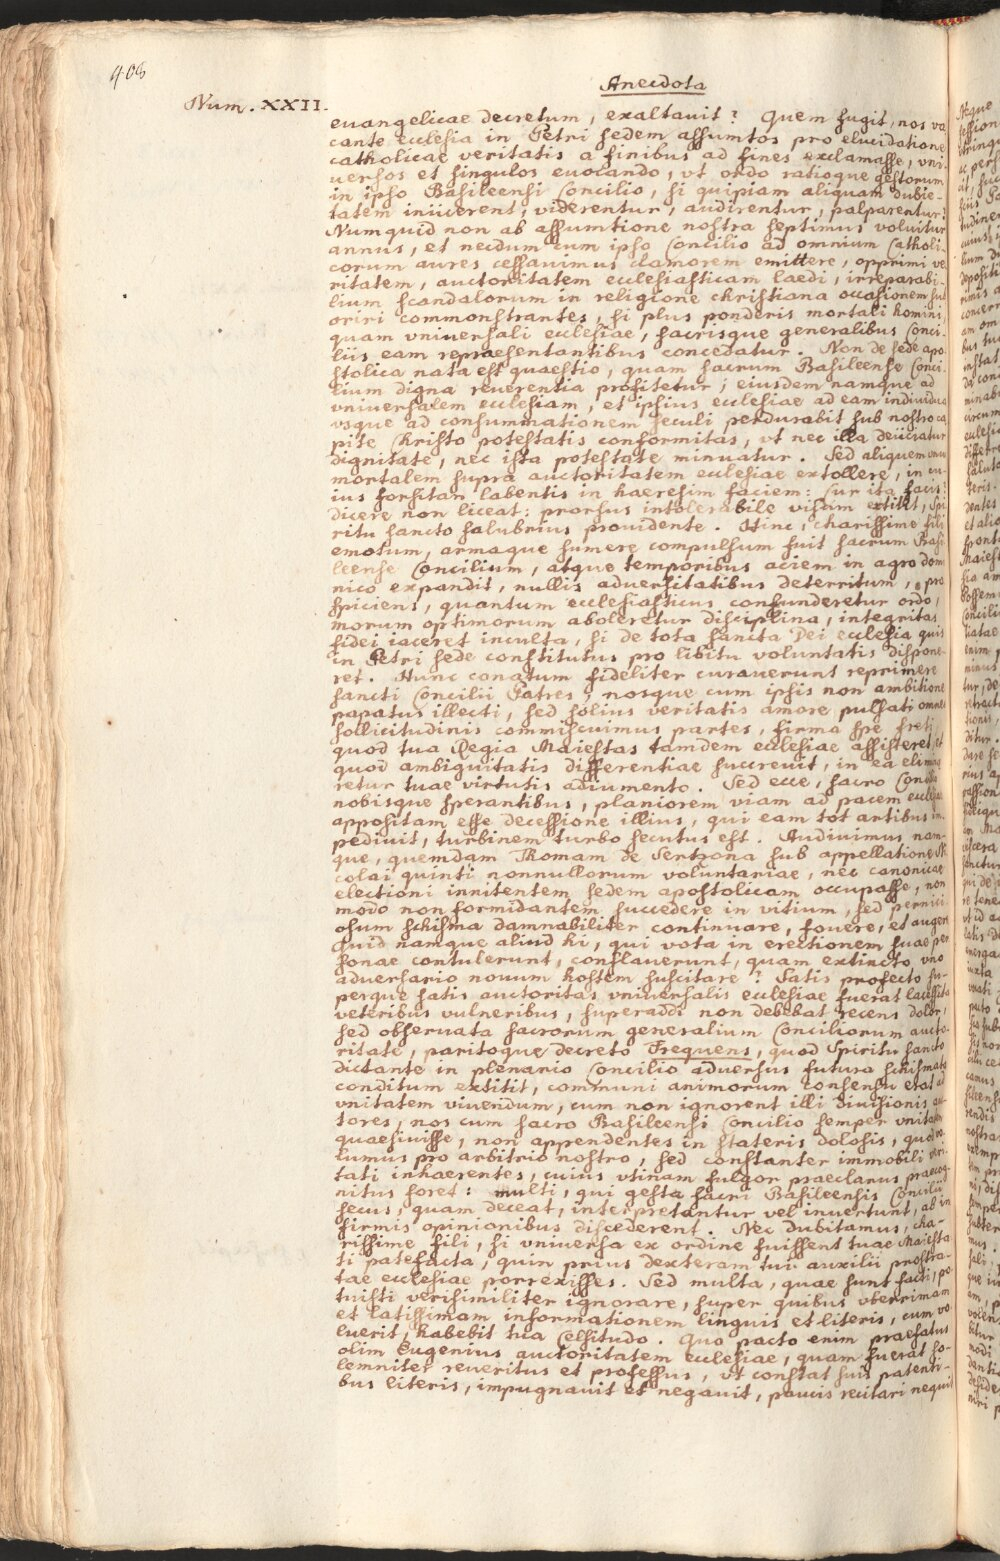 408
Anecdota
Num. XXII.
euangelicae decretum, exaltauit? Quem fugit, nos va
cante ecclesia in Petri sedem assumtos pro elucidatione
catholicae veritatis a finibus ad fines exclamasse, vni
uersos et singulos euocando, vt ordo ratioque gestorum
in ipso Basileensi Concilio, si quipiam aliquam dubie-
tatem iniicerent, viderentur, audirentur, palparentur?
Numquid non ab assumtione nostra septimus voluitur
annus, et necdum cum ipso Concilio ad omnium Catholi-
corum aures cessauimus clamorem emittere, opprimi ve
ritatem, auctoritatem ecclesiasticam laedi, irreparabi-
lium scandalorum in religione christiana occasionem sub
oriri commonstrantes, si plus ponderis mortali homini,
quam vniuersali ecclesiae, sacrisque generalibus Conci-
liis eam repraesentantibus concedatur. Non de sede apo-
stolica nata est quaestio, quam sacrum Basileense Conci-
lium digna reuerentia profitetur; eiusdem namque ad
vniuersalem ecclesiam, et ipsius ecclesiae ad eam indiuidua
vsque ad consummationem seculi perdurabit sub nostro ca
pite Christo potestatis conformitas, vt nec illa deiiciatur
dignitate, nec ista potestate minuatur. Sed aliquem vnum
mortalem supra auctoritatem ecclesiae extollere, in cu-
ius forsitan labentis in haeresim faciem: Cur ita facis?
dicere non liceat: prorsus intolerabile visum extitit, Spi
ritu sancto salubrius prouidente. Hinc, charissime fili
emotum, armaque sumere compulsum fuit sacrum Basi
leense Concilium, atque temporibus aciem in agro domi
nico expandit, nullis aduersitatibus deterritum, pro
spiciens, quantum ecclesiasticus confunderetur ordo,
morum optimorum aboleretur disciplina, integritas
fidei iaceret inculta, si de tota sancta Dei ecclesia quis
in Petri sede constitutus pro libitu voluntatis dispone-
ret. Hunc conatum fideliter curauerunt reprimere
sancti Concilii Patres, nosque cum ipsis non ambitione
papatus illecti, sed solius veritatis amore pulsati omnes
sollicitudinis commiscuimus partes, firma spe freti,
quod tua Regia Maiestas tamdem ecclesiae assisteret, et
quod ambiguitatis differentiae succreuit, in ea elimina
retur tuae virtutis adiumento. Sed ecce, sacro Concilio
nobisque sperantibus, planiorem viam ad pacem ecclesiae
appositam esse decessione illius, qui eam tot artibus im-
pediuit, turbinem turbo secutus est. Audiuimus nam-
que, quemdam Thomam de Sertzona sub appellatione Ni
colai quinti nonnullorum voluntariae, nec canonicae
electioni innitentem sedem apostolicam occupasse, non
modo non formidantem succedere in vitium, sed pernici
osum schisma damnabiliter continuare, fouere, et augere
Quid namque aliud hi, qui vota in erectionem suae per
sonae contulerunt, conflauerunt, quam extincto vno
aduersario nouum hostem suscitare? Satis profecto su-
perque satis auctoritas vniuersalis ecclesiae fuerat lacessita
veteribus vulneribus, superaddi non debebat recens dolor,
sed obseruata sacrorum generalium Conciliorum aucto-
ritate, paritoque decreto Frequens, quod Spiritu sancto
dictante in plenario Concilio aduersus futura schismata
conditum extitit, communi animorum consensu erat ad
vnitatem viuendum, cum non ignorent illi diuisionis au-
tores, nos cum sacro Basileensi Concilio semper vnitatem
quaesiuisse, non apprendentes in stateris dolosis, quod vo
lumus pro arbitrio nostro, sed constanter immobili veri
tati inhaerentes, cuius vtinam fulgor praeclarus praecog-
nitus foret: multi, qui gesta sacri Basileensis Concilii
secus, quam deceat, interpretantur vel inuertunt, ab in
firmis opinionibus discederent. Nec dubitamus, cha-
rissime fili, si vniuersa ex ordine fuissent tuae Maiesta
ti patefacta, quin prius dexteram tui auxilii prostra-
tae ecclesiae porrexisses. Sed multa, quae sunt facti, po
tuisti verisimiliter ignorare, super quibus vberrimam
et latissimam informationem linguis et literis, cum vo
luerit, habebit tua Celsitudo. Quo pacto enim praefatus
olim Eugenius auctoritatem ecclesiae, quam fuerat so-
lemniter reueritus et professus, vt constat suis patenti-
bus literis, impugnauit et negauit, paucis recitari nequit